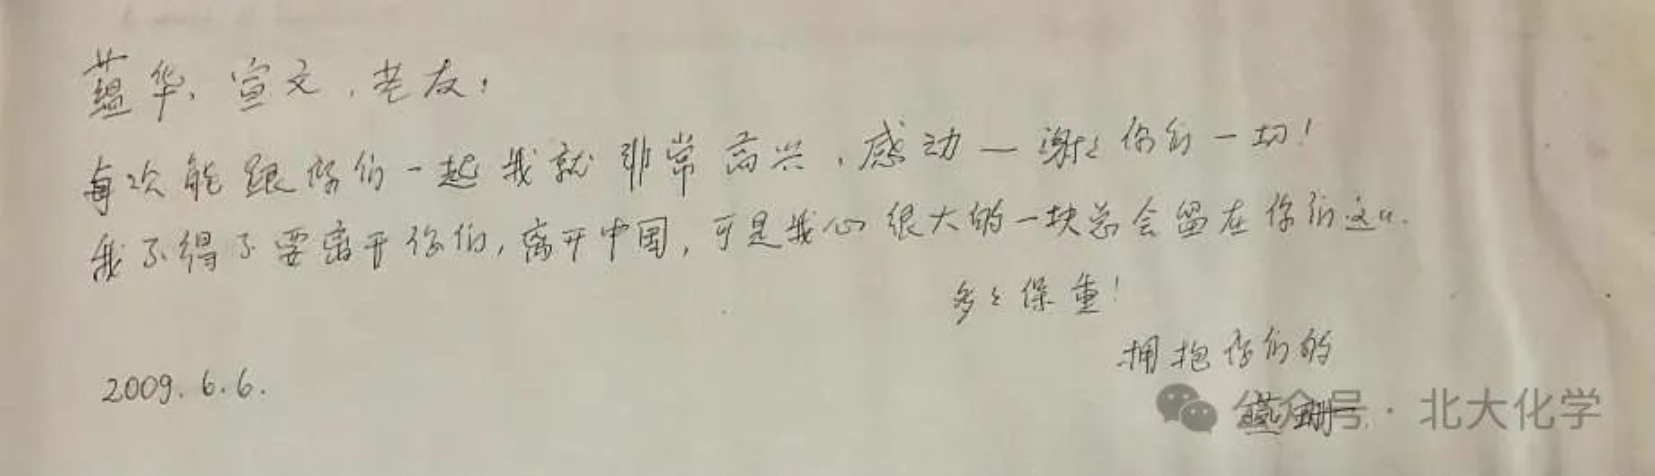 蕴华、宣文、老友：
每次能跟你们一起我就非常高兴、感动—谢々你们一切！
我不得不要离开你们,离开中国,可是我心很大的一块总会留在你们这儿.
多々保重！
拥抱你们的
2009.6.6.
公众号·北大化学